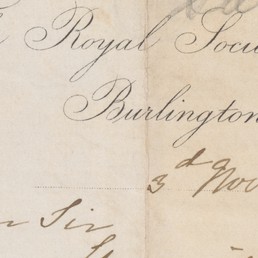 Royal Soci
Burlington
3d Nov
Sir